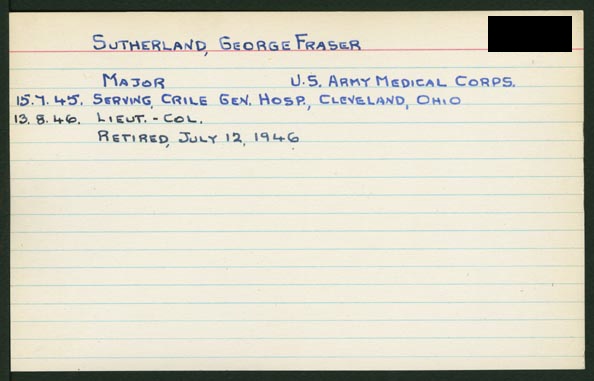 SUTHERLAND, GEORGE FRASER
MAJOR U.S. ARMY MEDICAL CORPS.
15.7.45. SERVING, CRILE GEN. HOSP., CLEVELAND, OHIO
13.8.46. LIEUT.-COL.
RETIRED, JULY 12, 1946